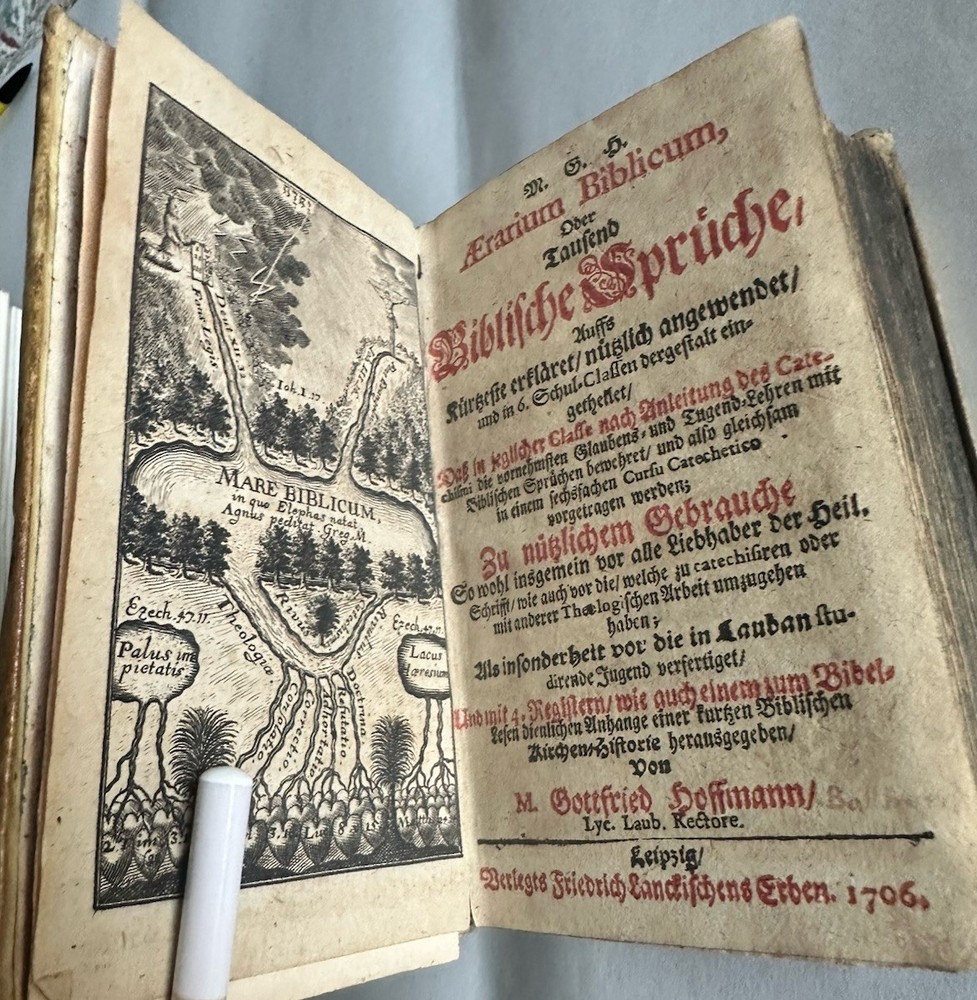 Deut.XII.32
Fons Legis
Ioh.1.17.
MARE BIBLICUM,
in quo Elephas natat
Agnus peditat. Greg.M.
Ezech.47.11.
Palus im
pietatis
Theologiæ
Rivus
Rivulus
Ezech.47.11.
Lacus
hæresium
Consolatio
Correctio
Adhortatio
Refutatio
Doctrina
M. G. H.
Ærarium Biblicum,
Oder
Tausend
Biblische Sprüche/
Auffs
Kürtzeste erkläret/ nützlich angewendet/
und in 6. Schul-Classen dergestalt ein-
getheilet/
Daß in jeglicher Classe nach Anleitung des Cate-
chismi die vornehmsten Glaubens- und Tugend-Lehren mit
Biblischen Sprüchen bewehret/ und also gleichsam
in einem sechsfachen Cursu Catechetico
vorgetragen werden;
Zu nützlichem Gebrauche
So wohl insgemein vor alle Liebhaber der Heil.
Schrifft/ wie auch vor die/ welche zu catechisiren oder
mit anderer Theologischen Arbeit umzugehen
haben;
Als insonderheit vor die in Lauban stu-
dirende Jugend verfertiget/
Und mit 4. Registern/ wie auch einem zum Bibel-
Lesen dienlichen Anhange einer kurtzen Biblischen
Kirchen-Historie herausgegeben/
Von
M. Gottfried Hoffmann/
Lyc. Laub. Rectore.
Leipzig/
Verlegts Friedrich Lanckischens Erben. 1706.